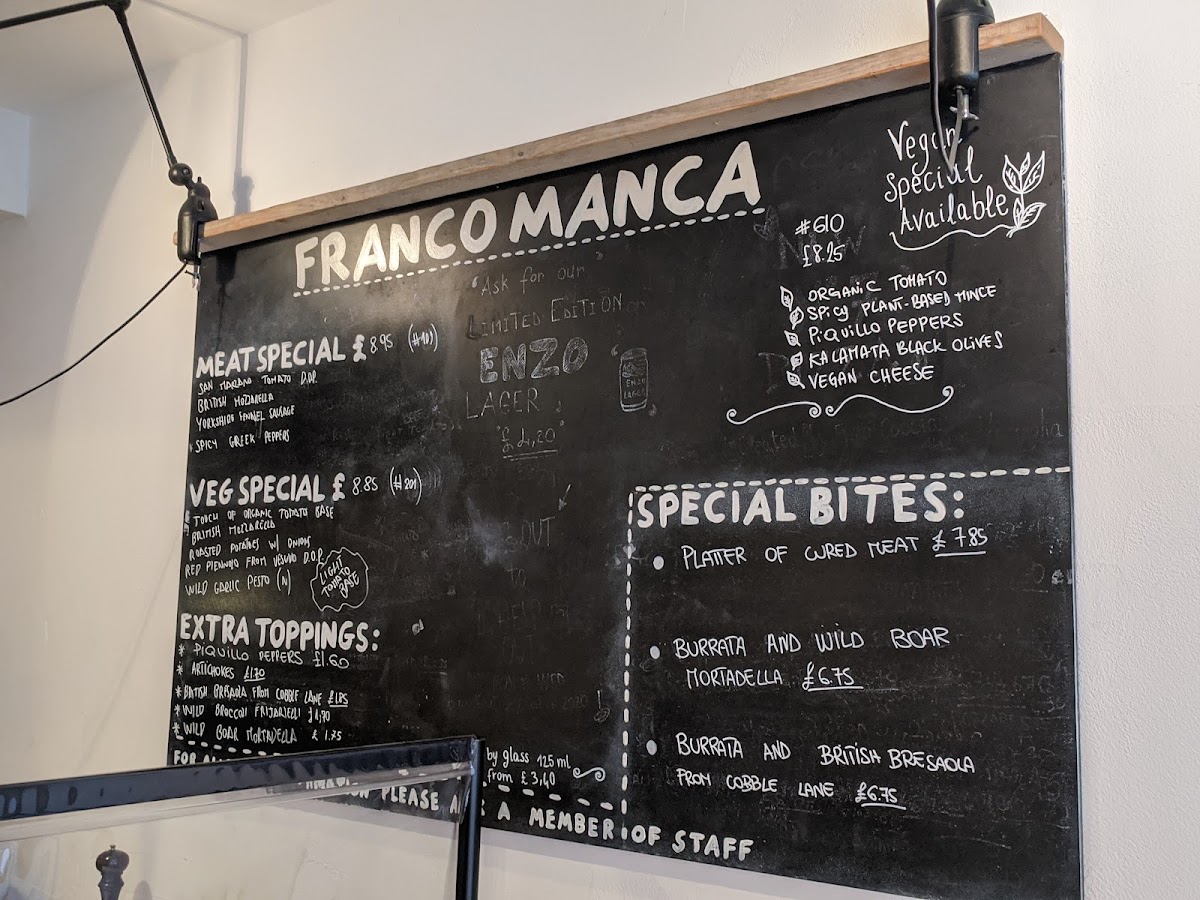 FRANCO MANCA
MEAT SPECIAL £ 8.95
SAN MARZANO TOMATO D.O.P.
BRITISH MOZZARELLA
YORKSHIRE FENNEL SAUSAGE
SPICY GREEK PEPPERS
VEG SPECIAL £ 8.85 (#201)
TOUCH OF ORGANIC TOMATO BASE
BRITISH MOZZARELLA
ROASTED POTATOES W/ ONIONS
RED PIENNOLO FROM VESUVIO D.O.P.
WILD GARLIC PESTO (N)
LIGHT
TOMATO
BASE
EXTRA TOPPINGS:
* PIQUILLO PEPPERS £1.60
* ARTICHOKES £1.70
* BRITISH BRESAOLA FROM COBBLE LANE £1.85
* WILD BROCCOLI FRIJARIELLI £1,70
* WILD BOAR MORTADELLA £ 1.75
"Ask for our
LIMITED EDITION
ENZO
LAGER
"£ 4,20"
ENZO
LAGER
OUT
by glass 125 ml
from £ 3,40
FOR
PLEASE A MEMBER OF STAFF
Vegan
Special
Available
#610
£8.25
ORGANIC TOMATO
SPICY PLANT-BASED MINCE
PIQUILLO PEPPERS
KALAMATA BLACK OLIVES
VEGAN CHEESE
SPECIAL BITES:
• PLATTER OF CURED MEAT £7.85
• BURRATA AND WILD BOAR
MORTADELLA £6.75
• BURRATA AND BRITISH BRESAOLA
FROM COBBLE LANE £6.75